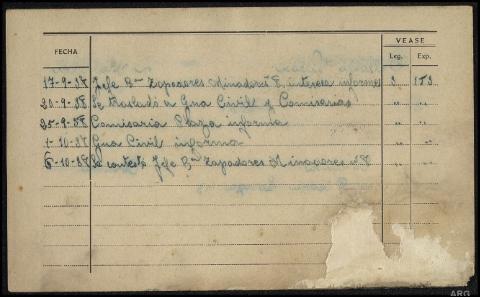 VEASE
FECHA Leg. Exp.
17-9-38 Jefe Bon Zapadores Minadores 8, interesa informes 3 153
20-9-38 Se traslada a Gua Civil y Comisarias " "
25-9-38 Comisaria Plaza informa " "
1-10-38 Gua Civil informa " "
6-10-38 Se contesta Jefe Bon Zapadores Minadores nº 8 " "
ARG